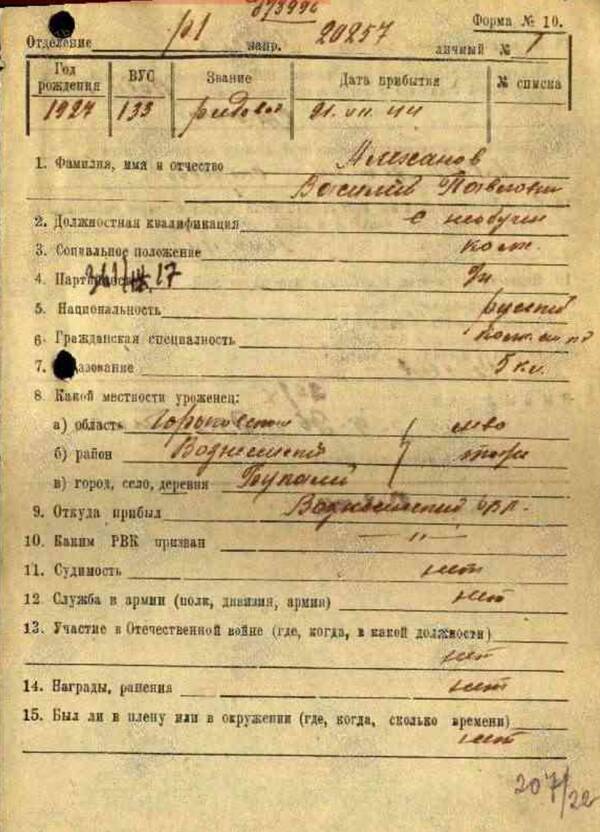 673996
Форма № 10.
Отделение р1 напр. 20257 личный № 1
Год рождения ВУС Звание Дата прибытия № списка
1927 133 рядовой 21.VII.44
1. Фамилия, имя и отчество
Василий Павлович
2. Должностная квалификация необучен
3. Социальное положение колх.
4. 17 б/п
5. Национальность русский
6. Гражданская специалность
7. 5 кл.
8. Какой местности уроженец:
а) область Горьковская
б) район Вознесенский
в) город, село, деревня
9. Откуда прибыл Вознесенский
10. Каким РВК призван — " —
11. Судимость нет
12. Служба в армии (полк, дивизия, армия) нет
13. Участие в Отечественной войне (где, когда, в какой должности)
нет
14. Награды, ранения нет
15. Был ли в плену или в окружении (где, когда, сколько времени)
нет
207/22